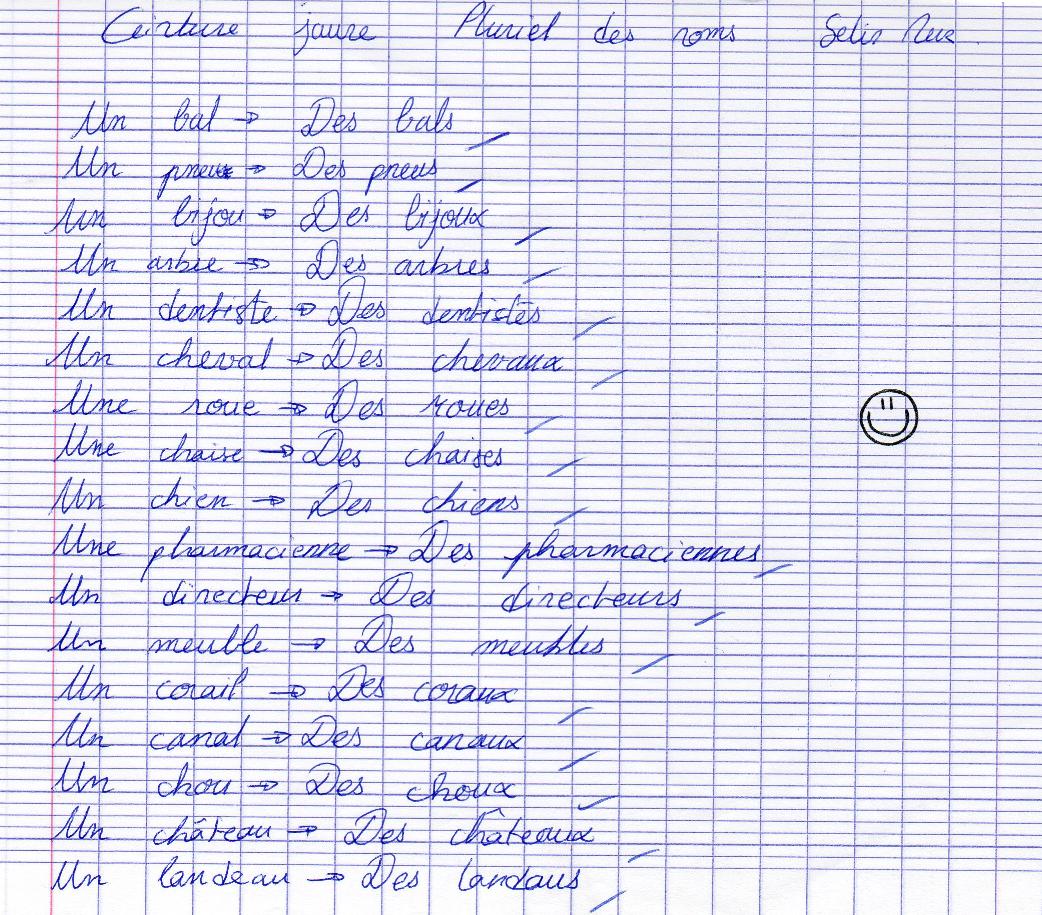 Ceinture jaune Pluriel des noms
Un bal → Des bals
Un pneu → Des pneus
Un bijou → Des bijoux
Un arbre → Des arbres
Un dentiste → Des dentistes
Un cheval → Des chevaux
Une roue → Des roues
Une chaise → Des chaises
Un chien → Des chiens
Une pharmacienne → Des pharmaciennes
Un directeur → Des directeurs
Un meuble → Des meubles
Un corail → Des coraux
Un canal → Des canaux
Un chou → Des choux
Un château → Des châteaux
Un landeau → Des landaus